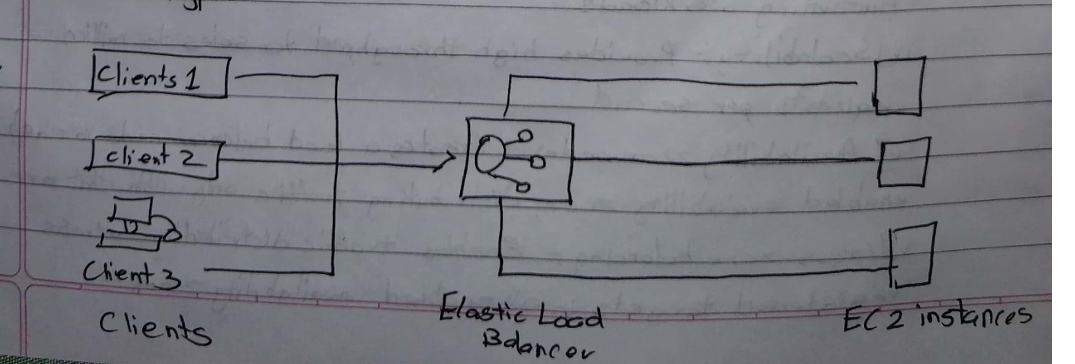 Clients 1
Client 2
Client 3
Clients
Elastic Load
Balancer
EC2 instances